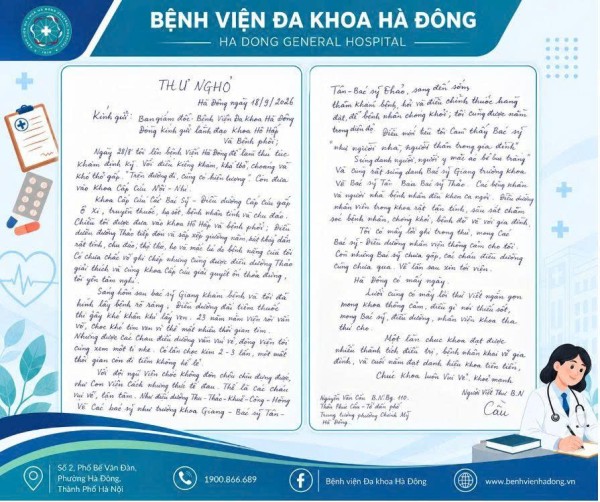 BỆNH VIỆN ĐA KHOA HÀ ĐÔNG
HA DONG GENERAL HOSPITAL
THƯ NGHỎ
Hà Đông ngày 18/9/2026
Kính gửi: Ban giám đốc: Bệnh Viện Đa khoa Hà Đông
Đồng kính gửi lãnh đạo Khoa Hô Hấp
Và Bệnh phổi;
Ngày 28/8 tôi lên bệnh viện Hà Đông để làm thủ tục
khám định kỳ. Với điều kiện khám, khó thở, choáng và
khó thở gấp. "Trên đường đi, cũng có hiện tượng". Con đưa
vào Khoa Cấp Cứu Nội - Nhi.
Khoa Cấp Cứu Các Bác Sỹ - Điều dưỡng Cấp cứu gấp
Ô Xi, truyền thuốc, hạ sốt, bệnh nhân tỉnh và chu đáo.
Chiều tôi được đưa vào khoa Hô Hấp và bệnh phổi; Điều
điều dưỡng Thảo tiếp đón và sắp xếp giường nằm, hút thấy dẫn
rất tỉnh, chu đáo, thở cho, ho và mặc dù do bệnh nặng của tôi
Có chưa chắc vở ghi chép nhưng cũng được điều dưỡng Thảo
giải thích và cùng khoa Cấp Cứu giải quyết ổn thỏa đúng,
tôi yên tâm nghỉ.
Sang hôm sau bác sỹ Giang khám bệnh và tôi đã
hình lấy bệnh rõ ràng. Điều dưỡng đầu tiêm thuốc
thì gầy khó khăn khi lấy ven. 23 năm nằm viện rồi vẫn
vỡ, chọc khó tìm ven vì thế mất nhiều thời gian tìm.
Nhưng được các Cháu điều dưỡng vẫn vui vẻ, động viên tôi
cũng xem một tí nhẹ. Có lần chọc kim 2-3 lần, mới mất
thời gian còn đi tiêm không hề bỏ.
Với đội ngũ Viên chức không đơn thuần chịu đựng được,
như Con Viên Cách nhưng thực tế đau. Thế là Các cháu
vui vẻ, tận tâm. Như điều dưỡng Thu-Thảo-Khuê-Công-Hồng
Về Các bác sỹ như trưởng khoa Giang - Bác sỹ Tân-
Tân-Bác sỹ Thảo, sang đến sớm
thăm khám bệnh, hỏi và điều chỉnh thuốc hàng
đợt, để bệnh nhân chóng khỏi, tôi cũng được nằm
trong diện đó. Điều mới nêu tôi Cảm thấy Bác sỹ
"như người nhà, người thân trong gia đình"
"Xứng danh người, người y mặc áo bờ lu trắng"
Và Cùng rất xứng danh Bác sỹ Giang trưởng khoa
Và Bác sỹ Tân. Bác sỹ Thảo. Các bệnh nhân
và người nhà bệnh nhân đến khoa ca ngợi. Điều dưỡng
nhân viên trong khoa rất tận tình, sớm sát chăm
sóc bệnh nhân, chóng khỏi, bệnh đỡ về với gia đình.
Tôi có mấy lời ghi trong thư, mong Các
Bác sỹ - Điều dưỡng nhân viên thông cảm cho tôi.
Còn những Bác sỹ chưa gặp, các cháu điều dưỡng
cũng chưa qua. Về lần sau xin tới viện.
Hà Đông có mấy ngày.
Cuối cùng có mấy lời thư Viết ngắn gọn
mong khoa thông cảm, điều gì nói thiếu sót,
mong Bác sỹ, điều dưỡng, nhân viên khoa tha
thứ cho.
Một lần chúc khoa đạt được
nhiều thành tích điều trị, bệnh nhân khỏi về gia
đình, và cuối năm đạt danh hiệu khoa tiên tiến,
Chúc Khoa luôn Vui Vẻ, khoẻ mạnh
Người Viết Thư B.N
Cầu
Nguyễn Văn Cầu B.N.Bg.110.
Thôn Thái Cầu - Tổ dân phố
Trung tương phường Chương Mỹ
Hà Đông.
Số 2, Phố Bế Văn Đàn,
Phường Hà Đông,
Thành Phố Hà Nội
1900.866.689
Bệnh viện Đa khoa Hà Đông
www.benhvienhadong.vn